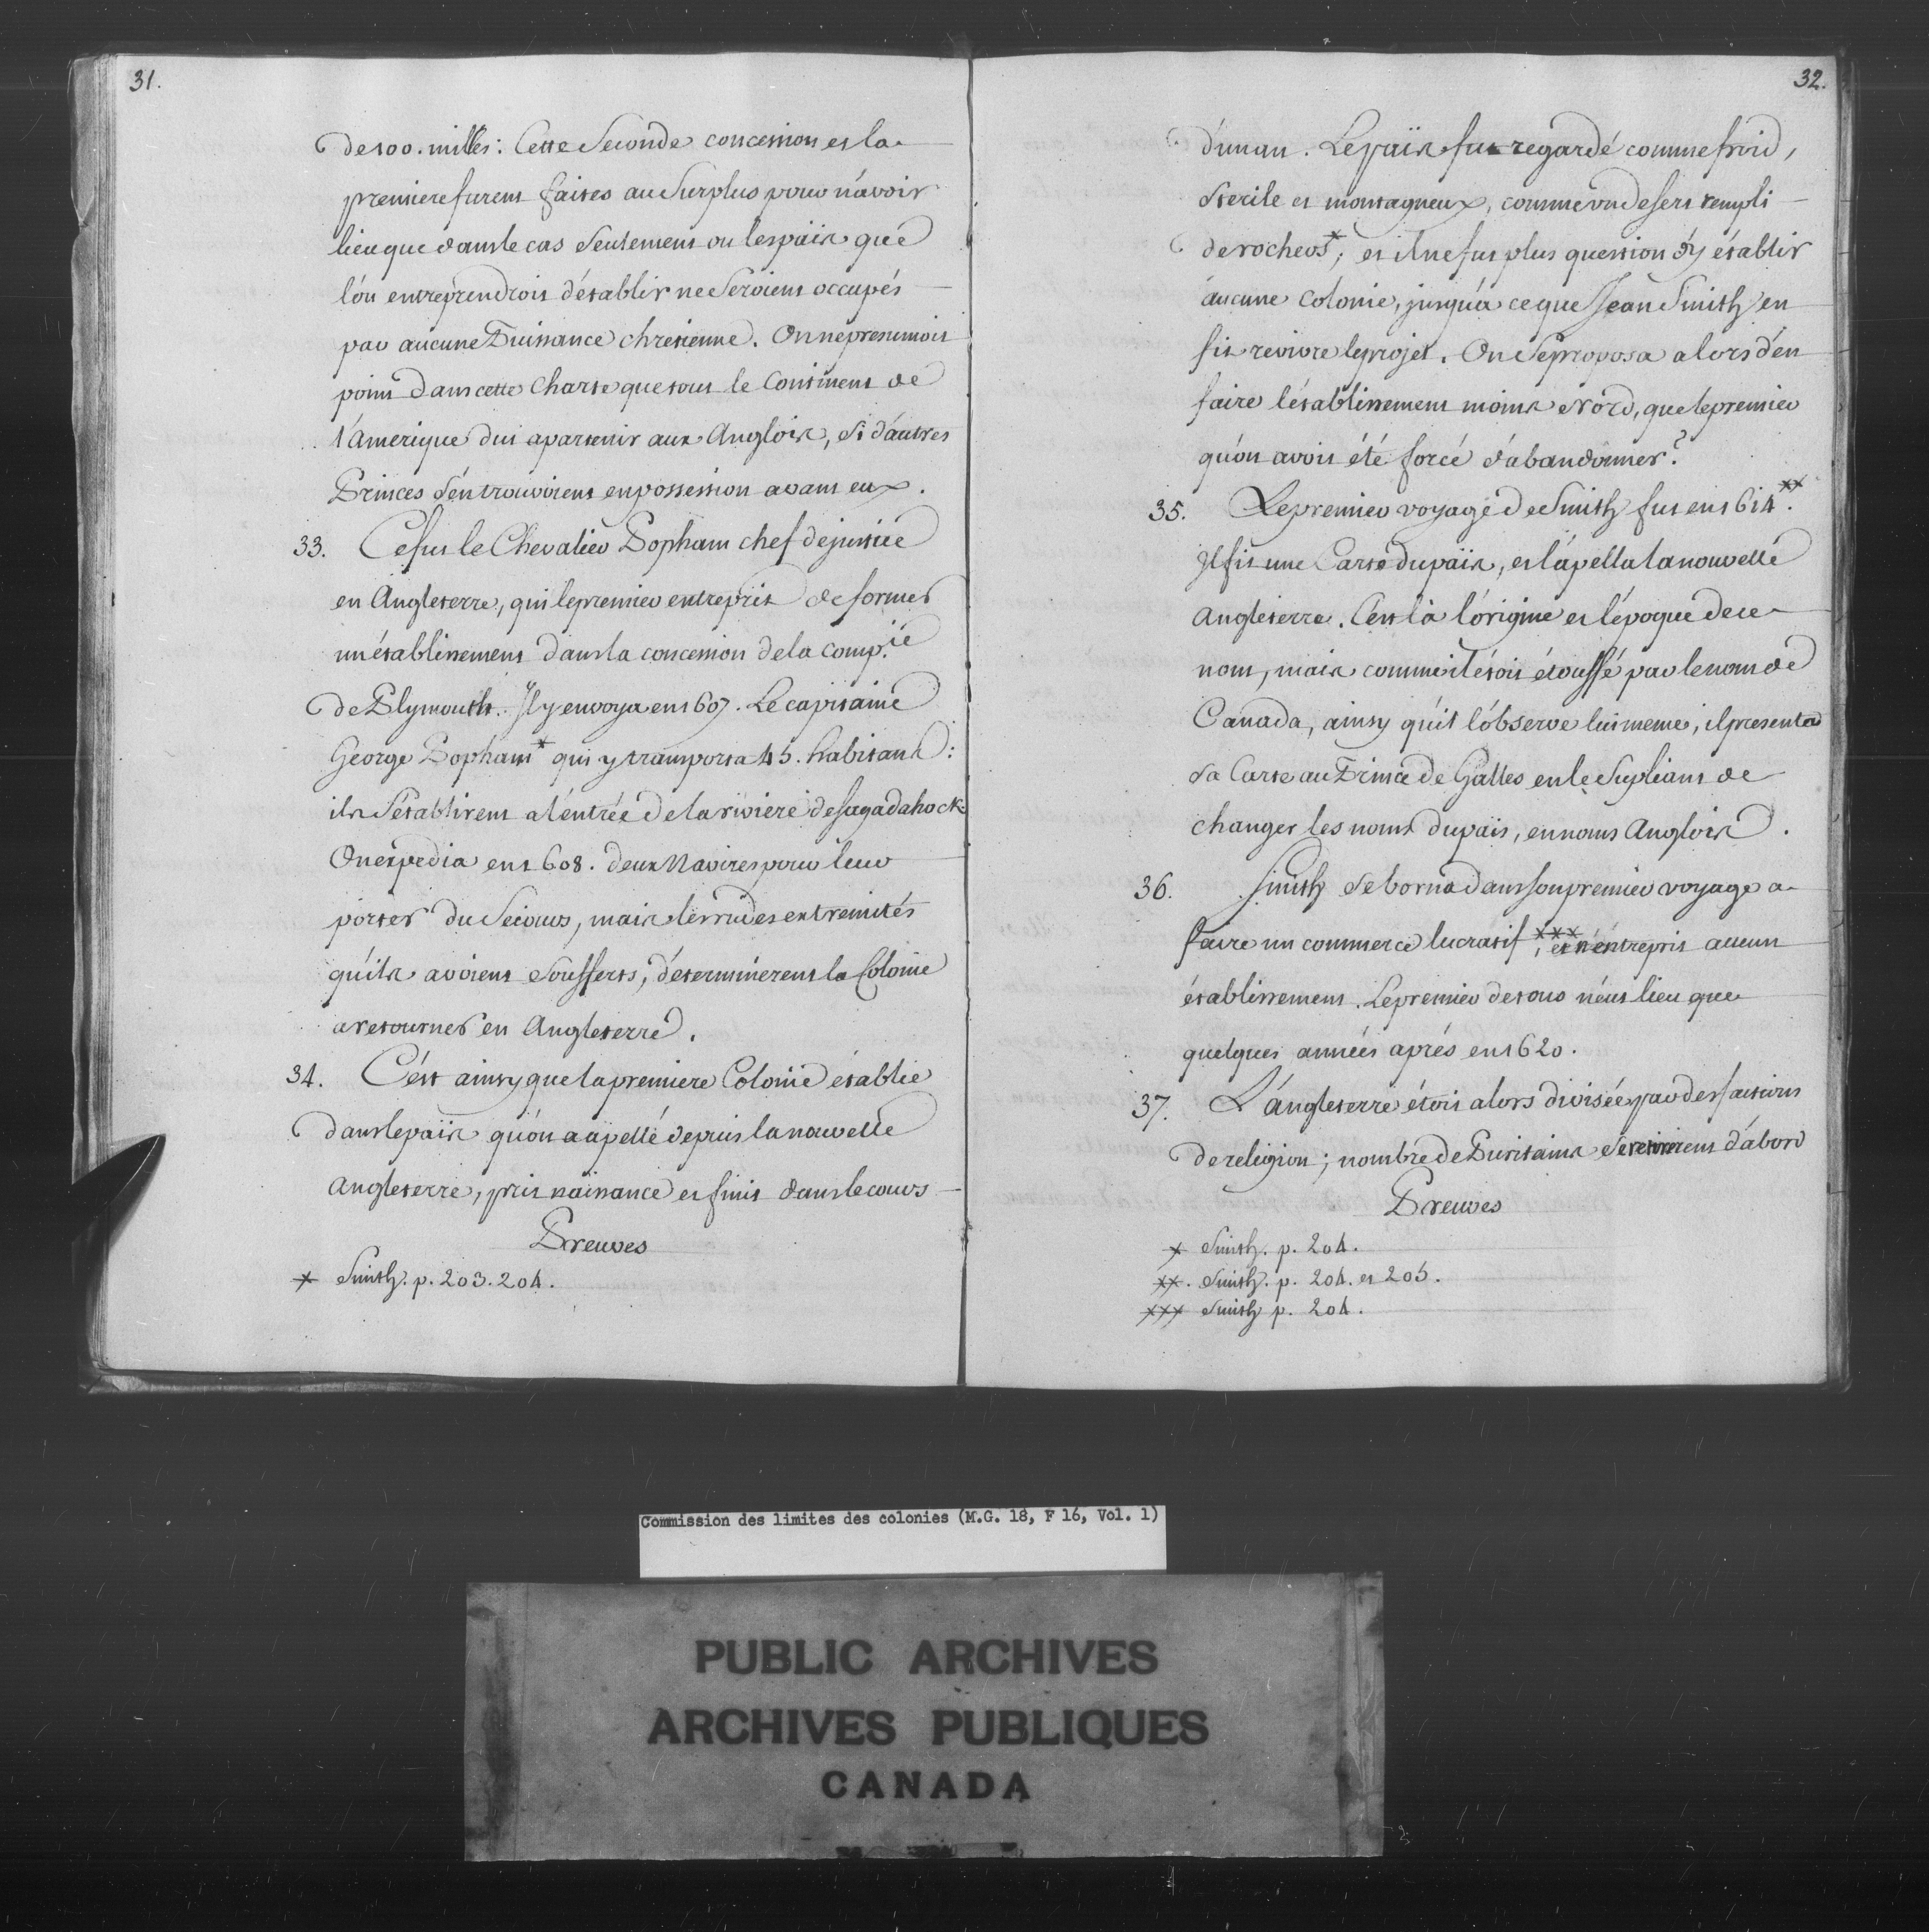 31.
de 100. milles: Cette Seconde concession et la
premiere furent faites au Surplus pour n'avoir
lieu que dans le cas Seulement ou les païs que
l'on entreprendroit d'établir ne Seroient occupés
par aucune Puissance chretienne. On ne presumoit
point dans cette Charte que tout le Continent de
l'Amerique dut apartenir aux Anglois, Si d'autres
Princes s'en trouvoient en possession avant eux.
33. Ce fut le Chevalier Popham chef de justice
en Angleterre, qui le premier entreprit de former
un établissement dans la concession de la comp.ie
de Plymouth. Il y envoya en 1607. Le capitaine
George Popham* qui y transporta 45. habitans:
ils S'établirent a l'entrée de la riviere de Sagadahock
On expedia en 1608. deux Navires pour leur
porter du Secours, mais les rudes extremités
qu'ils avoient Soufferts, déterminerent la Colonie
a retourner en Angleterre.
34. C'est ainsy que la premiere Colonie établie
dans le païs qu'on a apellé depuis la nouvelle
Angleterre, prit naissance et finit dans le cours
Preuves
* Smith. p. 203. 204.
32.
d'un an. Le païs fut regardé comme froid,
Sterile et montagneux, comme un desert rempli
de rochers*; et il ne fut plus question d'y établir
aucune Colonie, jusqu'à ce que Jean Smith en
fit revivre le projet. On Se proposa alors d'en
faire l'établissement moins Nord, que le premier
qu'on avoit été forcé d'abandonner.
35. Le premier voyage de Smith fut en 1614.**
Il fit une Carte du païs, et l'apella la nouvelle
Angleterre. C'est là l'origine et l'époque de ce
nom, mais comme il étoit étouffé par le nom de
Canada, ainsy qu'il l'observe lui meme, il presenta
Sa Carte au Prince de Galles en le Supliant de
changer les noms du païs, en noms Anglois.
36. Smith Se borna dans son premier voyage a
faire un commerce lucratif ***, et n'entreprit aucun
établissement. Le premier de tous n'eut lieu que
quelques années aprés en 1620.
37. L'Angleterre étoit alors divisée par des factions
de religion; nombre de Puritains Se retirerent d'abord
Preuves
* Smith. p. 204.
**. Smith. p. 204. et 205.
*** Smith p. 204.
Commission des limites des colonies (M.G. 18, F 16, Vol. 1)
PUBLIC ARCHIVES
ARCHIVES PUBLIQUES
CANADA